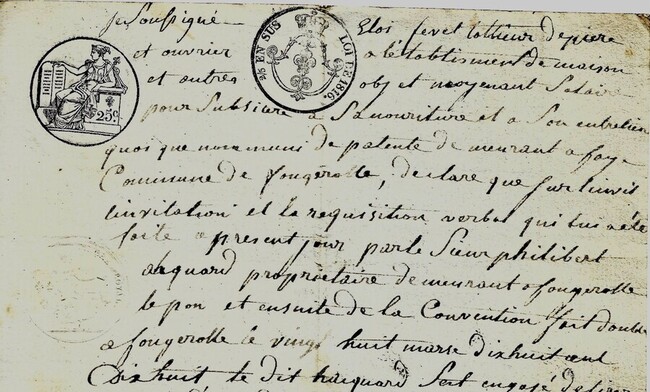 je Soussigné Eloi fevet tallieur de piere
et ouvrier a l'etablisment de maison
et autres obj et moyenant Salaire
pour Subsister a Sa nouriture et a Son entretien
quoi que non muni de patente de meurant a faye
Commune de fougerolle, declare que Sur
linvitation et la requisition verbal qui lui a été
faite a present jour par le Sieur philibert
proprietaire de meurant a fougerolle
le pon et ensuite de la Convention fait double
a fougerolle le vingt huit marse dixhuit cent
dixhuit le dit
25 c.
EN SUS
LOI DE 1816.